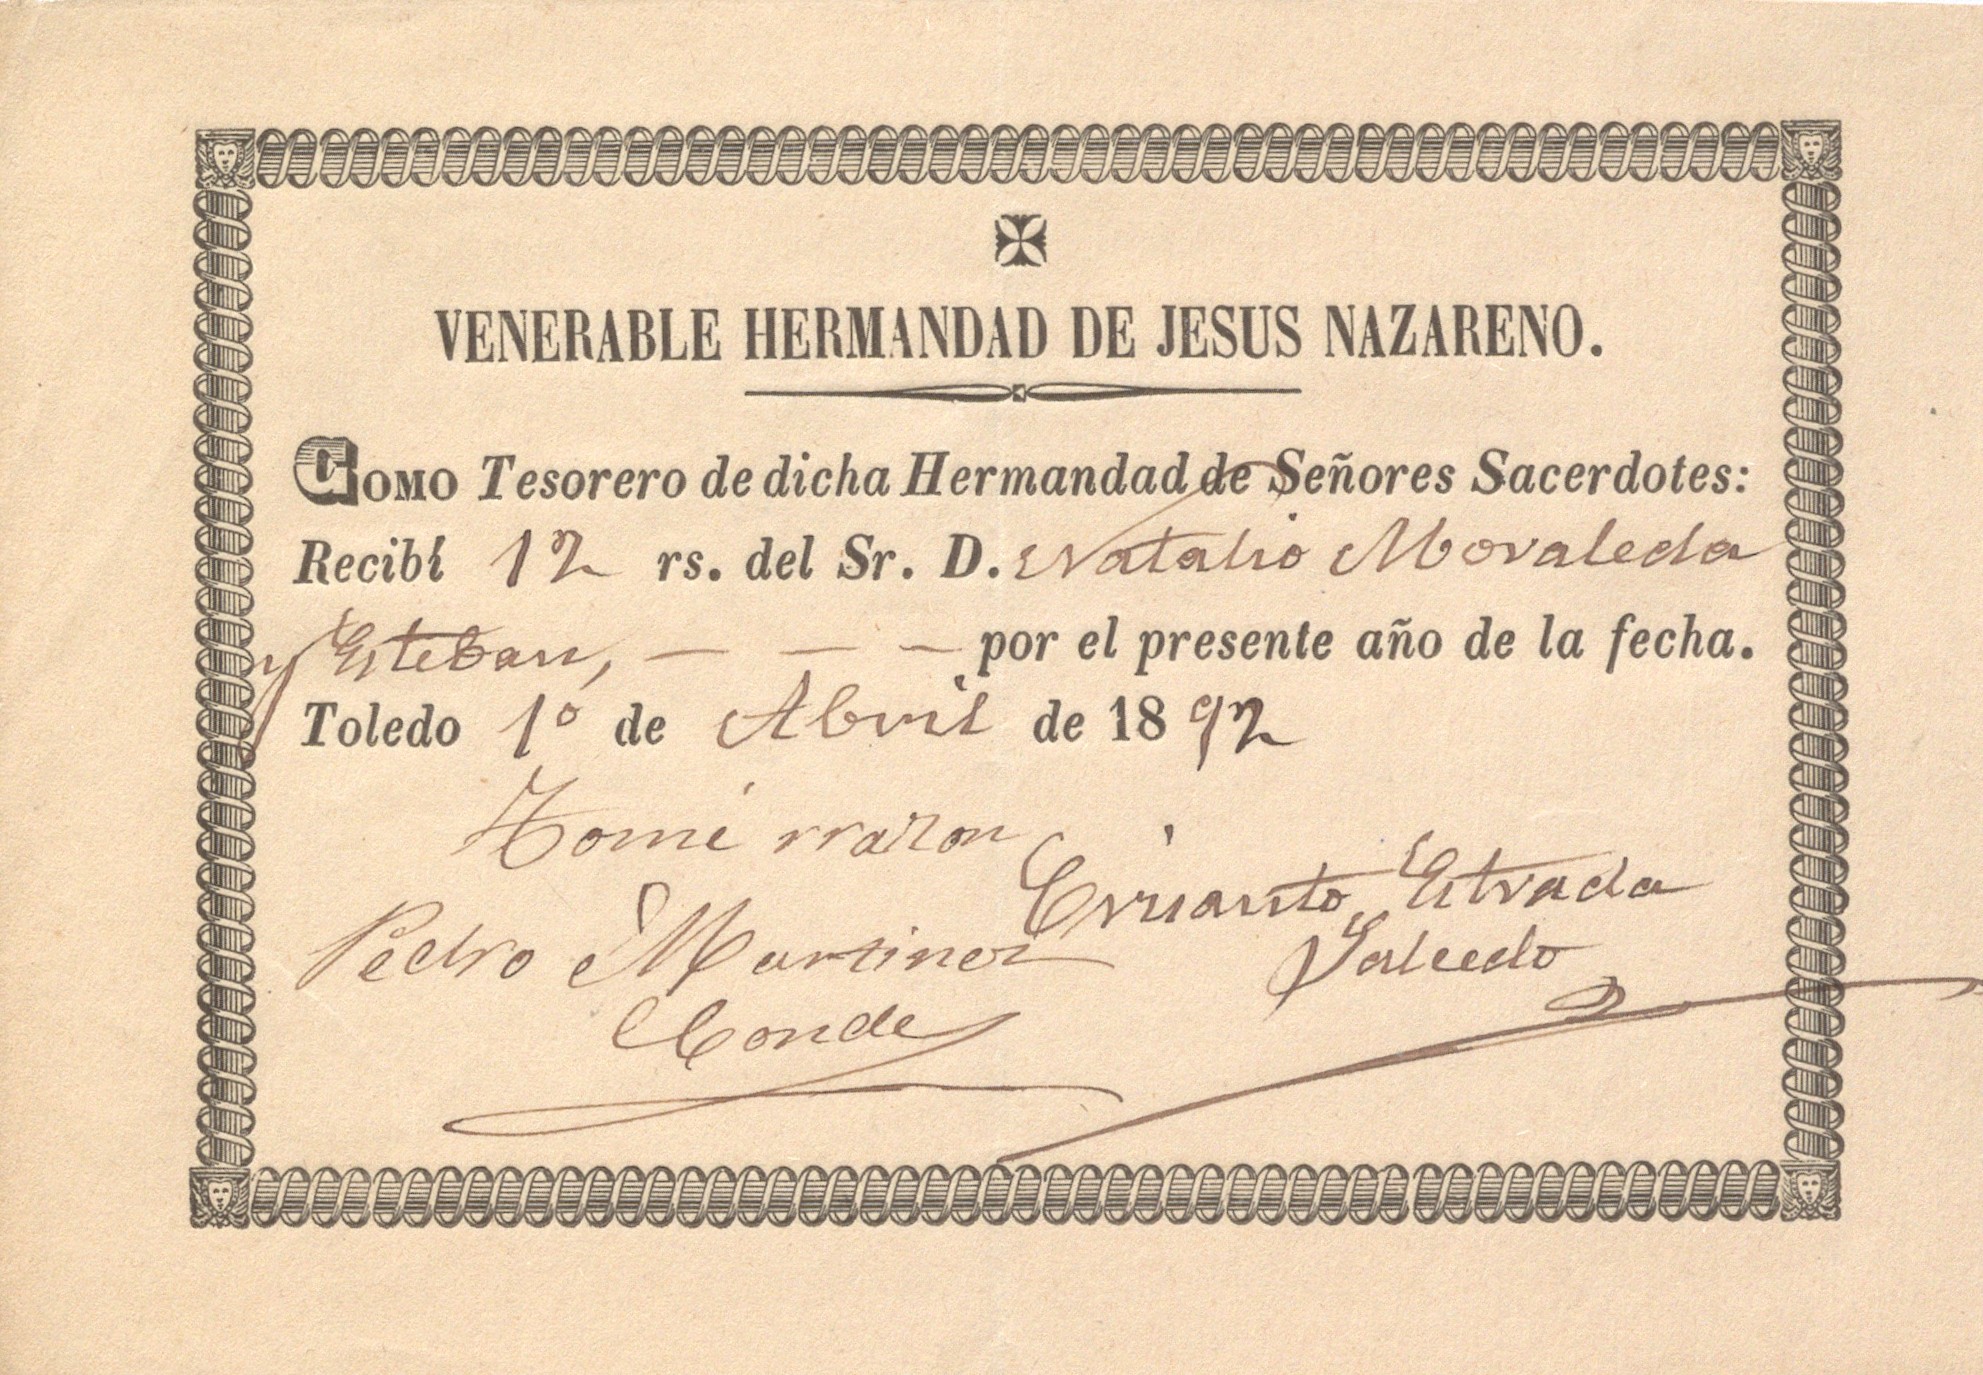 VENERABLE HERMANDAD DE JESUS NAZARENO.
COMO Tesorero de dicha Hermandad de Señores Sacerdotes:
Recibí 12 rs. del Sr. D. Natalio Moraleda
y Esteban, — — — por el presente año de la fecha.
Toledo 1º de Abril de 1892
Tomé rrazon
Estrada
Pedro Martinez Salcedo
Conde